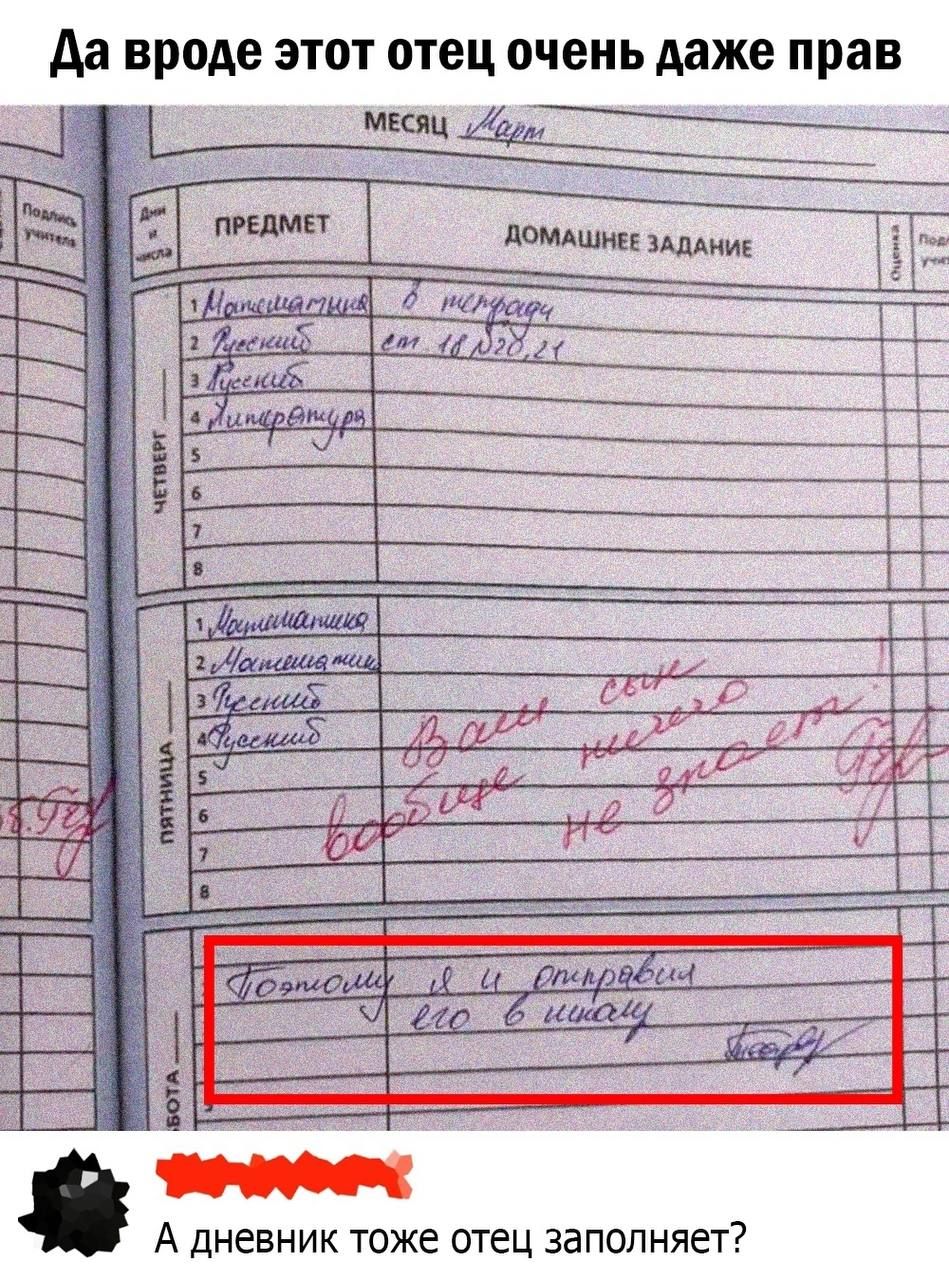 Да вроде этот отец очень даже прав
МЕСЯЦ Март
Подпись учителя
Дни и числа
ПРЕДМЕТ
ДОМАШНЕЕ ЗАДАНИЕ
Оценка
ЧЕТВЕРГ
1 Математика в тетради
2 Русский ст. 18 №20,21
3 Русский
4 Литература
5
6
7
8
ПЯТНИЦА
1 Математика
2 Математик
3 Русский
4 Русский
5
6
7
8
Ваш сын
вообще ничего
не знает!
БОТА
Поэтому я и отправил
его в школу
А дневник тоже отец заполняет?